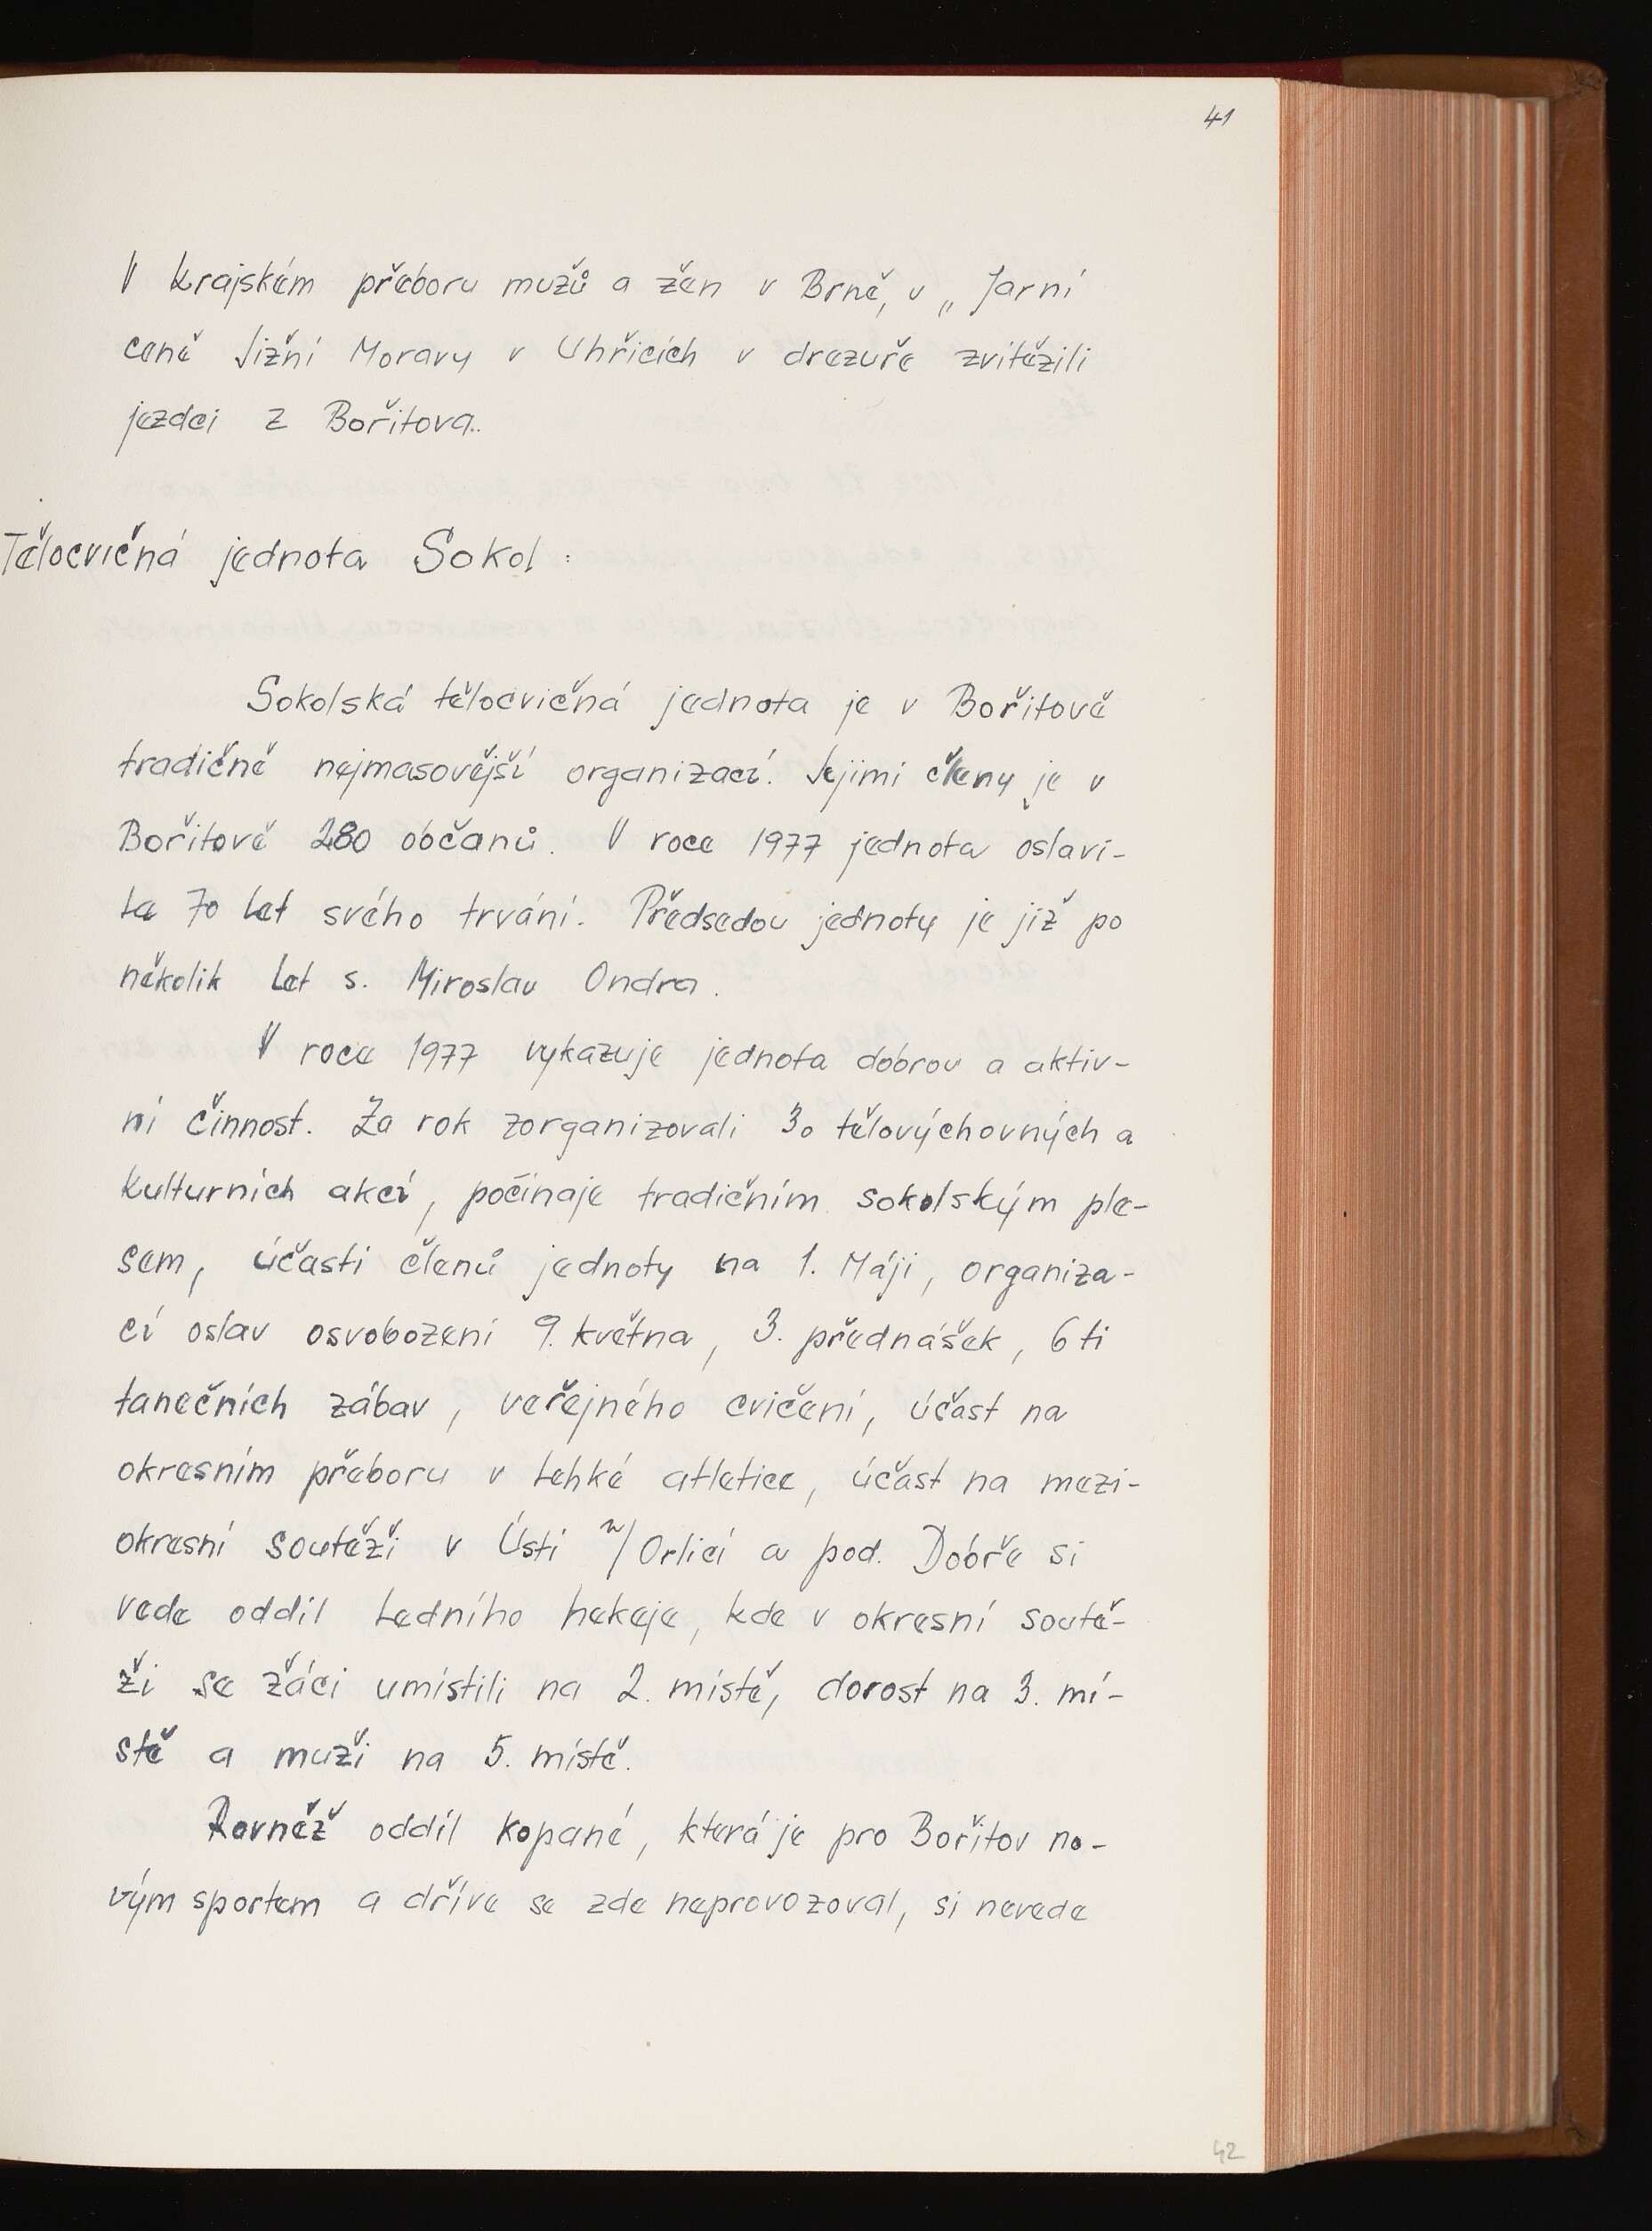 41
V krajském přeboru mužů a žen v Brně, v „ Jarní
ceně Jižní Moravy v Uhřicích v drezuře zvítězili
jezdci z Bořitova..
Tělocvičná jednota Sokol :
Sokolská tělocvičná jednota je v Bořitově
tradičně nejmasovější organizací. Jejími členy je v
Bořitově 280 občanů. V roce 1977 jednota oslavi-
la 70 let svého trvání. Předsedou jednoty je již po
několik let s. Miroslav Ondra.
V roce 1977 vykazuje jednota dobrou a aktiv-
ní činnost. Za rok zorganizovali 30 tělovýchovných a
kulturních akcí, počínaje tradičním sokolským ple-
sem, účasti členů jednoty na 1. Máji, organiza-
cí oslav osvobození 9. května, 3. přednášek, 6 ti
tanečních zábav, veřejného cvičení, účast na
okresním přeboru v lehké atletice, účast na mezi-
okresní soutěži v Ústí n/Orlicí a pod. Dobře si
vede oddíl ledního hokeje, kde v okresní soutě-
ži se žáci umístili na 2. místě, dorost na 3. mí-
stě a muži na 5. místě.
Rovněž oddíl kopané, která je pro Bořitov no-
vým sportem a dříve se zde neprovozoval, si nevede
42